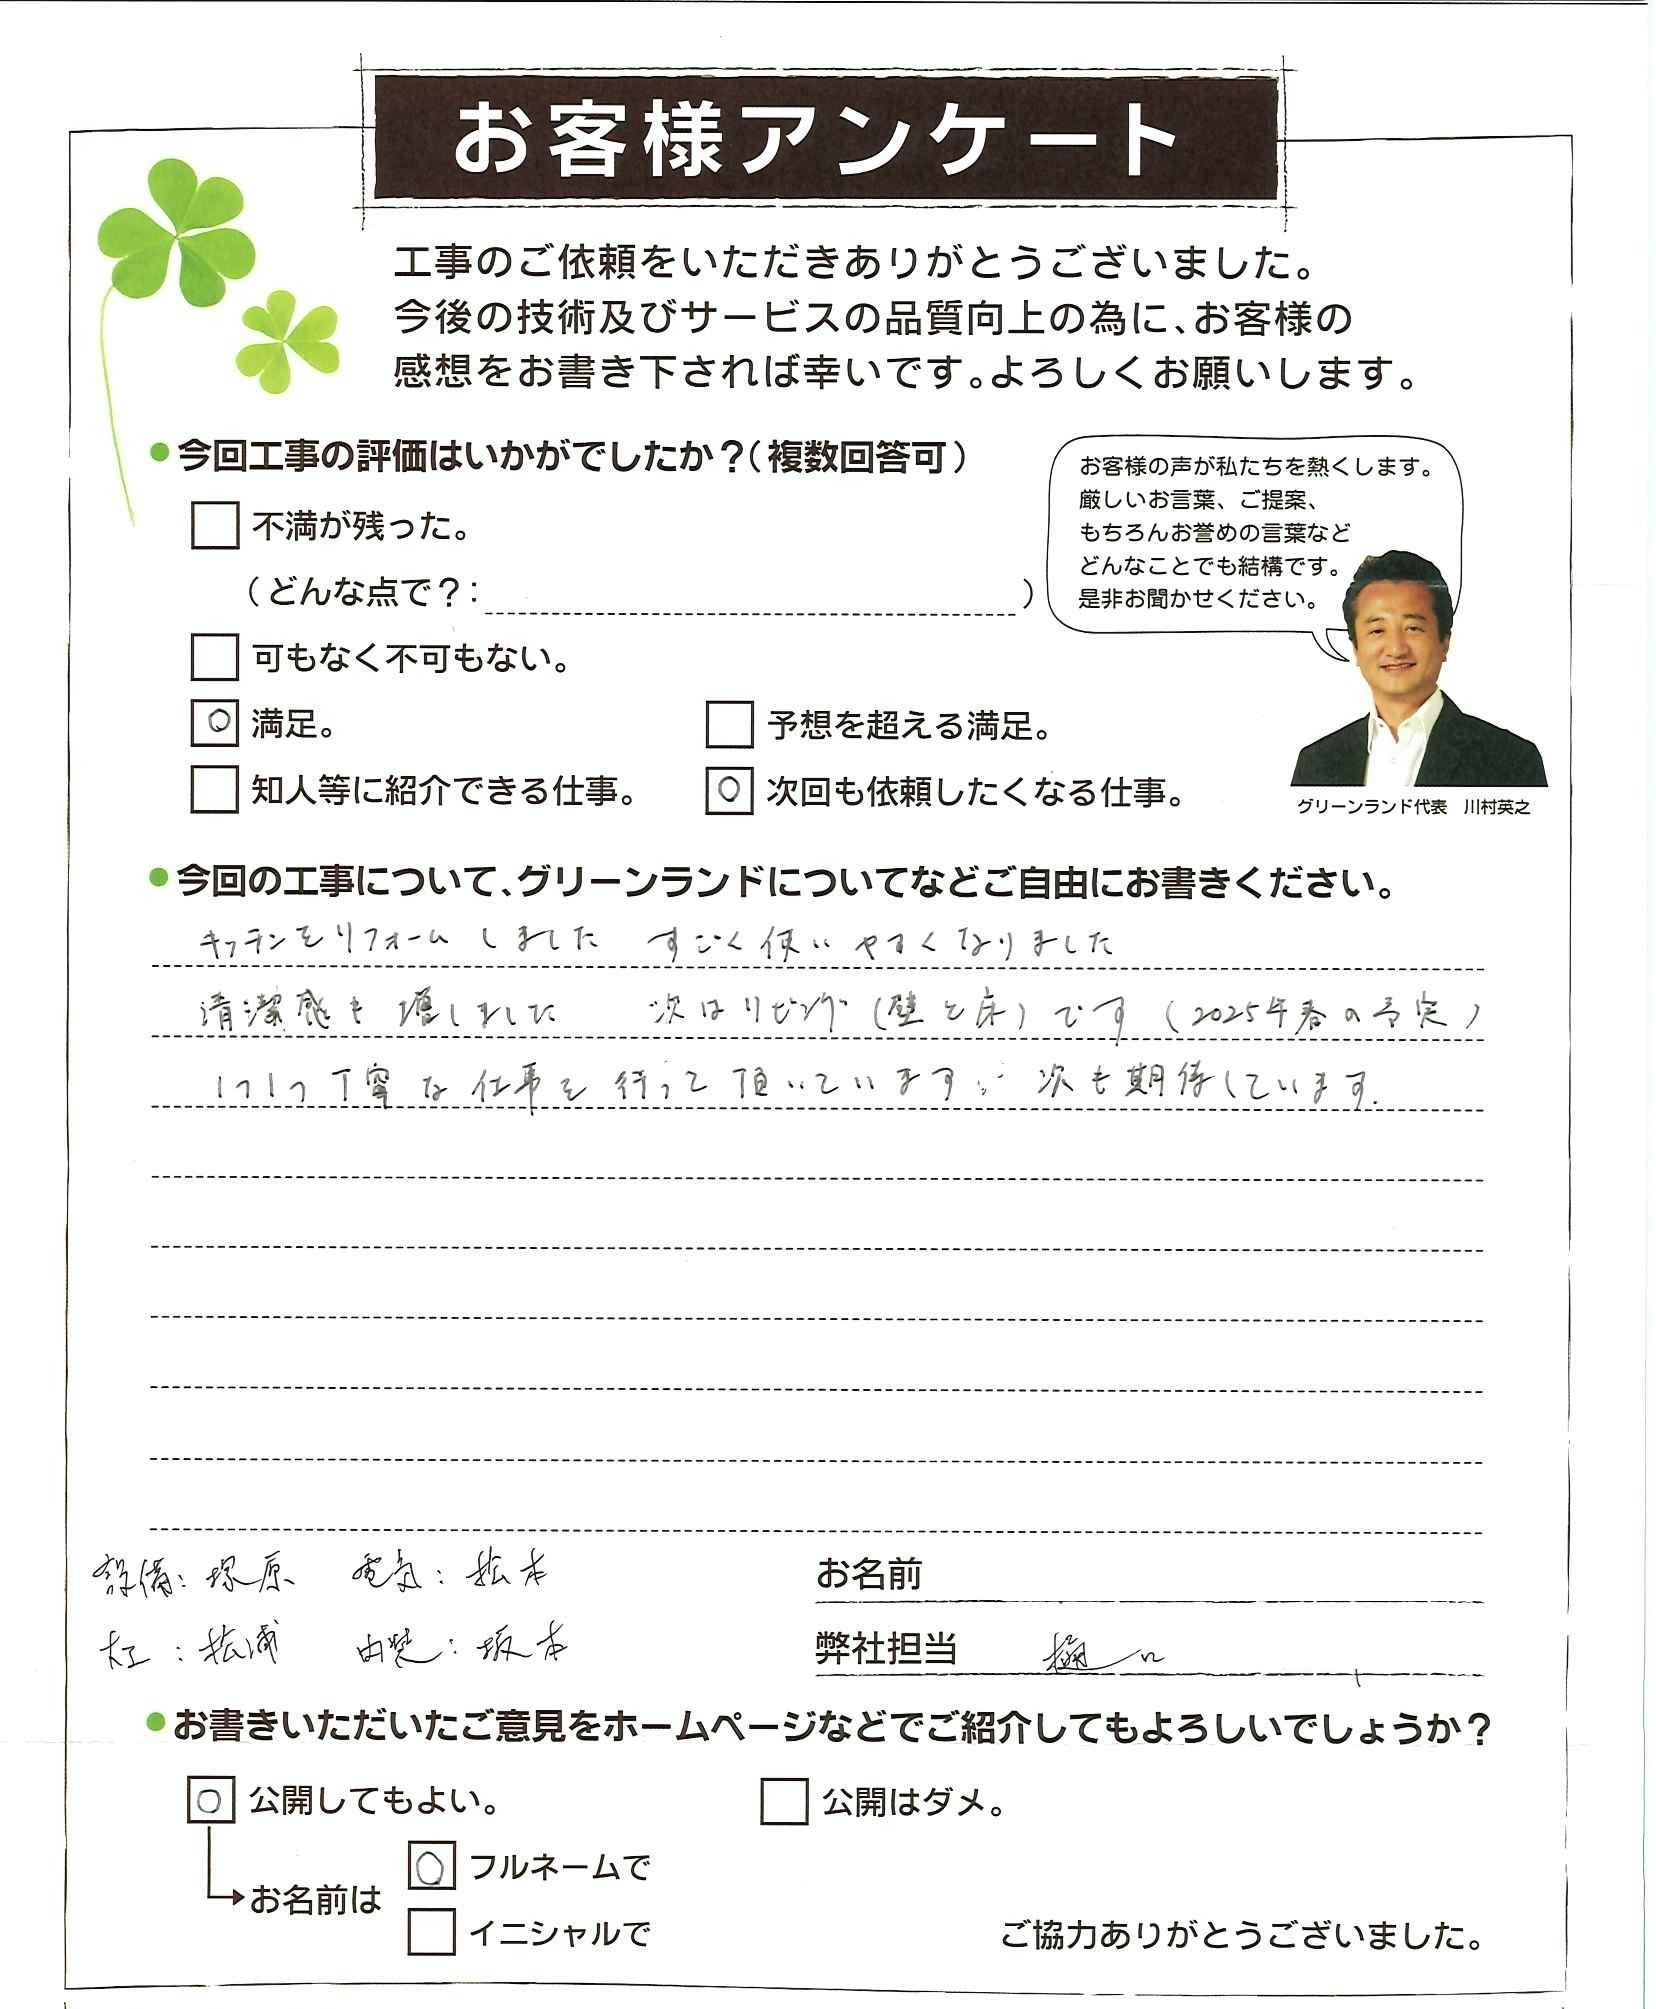 お客様アンケート
工事のご依頼をいただきありがとうございました。
今後の技術及びサービスの品質向上の為に、お客様の
感想をお書き下されば幸いです。よろしくお願いします。
●今回工事の評価はいかがでしたか？（複数回答可）
不満が残った。
（どんな点で？： ）
可もなく不可もない。
○ 満足。
予想を超える満足。
知人等に紹介できる仕事。
○ 次回も依頼したくなる仕事。
お客様の声が私たちを熱くします。
厳しいお言葉、ご提案、
もちろんお誉めの言葉など
どんなことでも結構です。
是非お聞かせください。
グリーンランド代表 川村英之
●今回の工事について、グリーンランドについてなどご自由にお書きください。
キッチンをリフォームしました すごく使いやすくなりました
清潔感も増しました 次はリビング(壁と床)です(2025年春の予定)
いつもいつも丁寧な仕事を行って頂いています。次も期待しています.
設備：塚原 電気：松本
大工：松浦 内装：坂本
お名前
弊社担当 樋口
●お書きいただいたご意見をホームページなどでご紹介してもよろしいでしょうか？
○ 公開してもよい。
公開はダメ。
お名前は
○ フルネームで
イニシャルで
ご協力ありがとうございました。